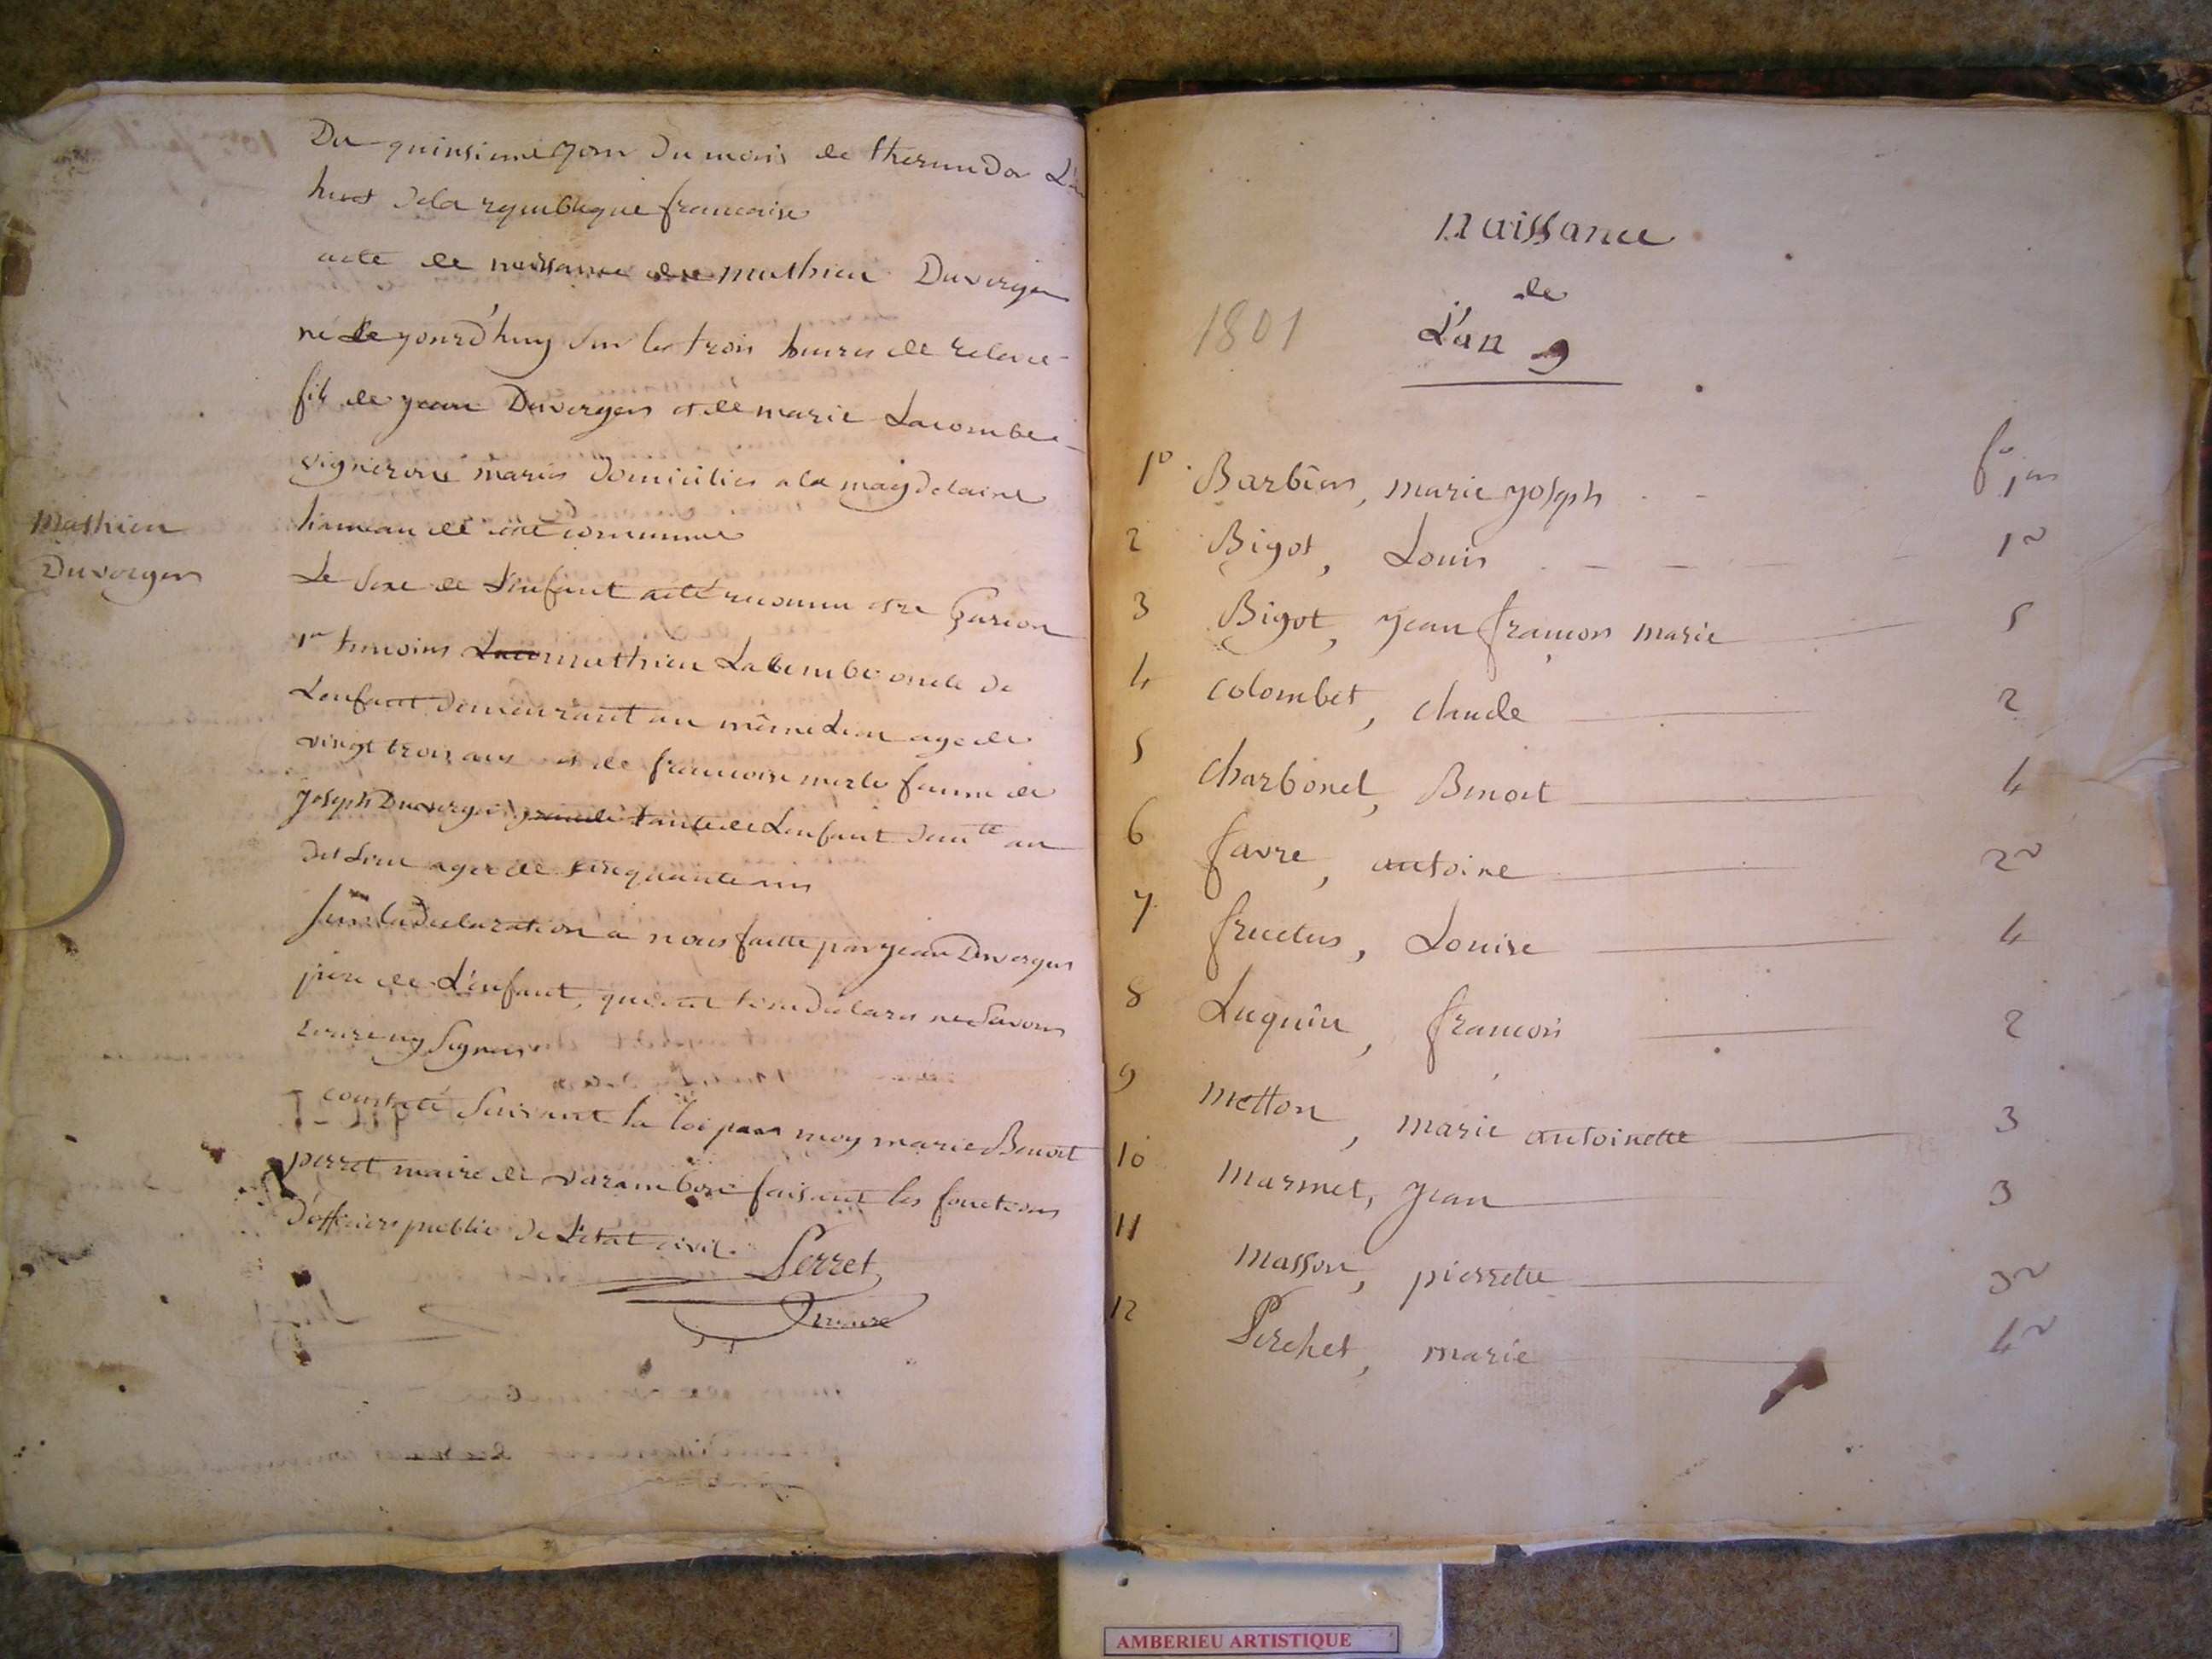 Du quinsieme jour du mois de thermidor L'an
huit dela republique francaise
acte de naissance de mathieu Duverger
né le yourd'huy sur les trois heures de relevée
fils de jean Duverger et de marie Lacombe
vignerons mariés domiciliés a la magdelaine
hameau de cette commune
Mathieu
Duverger
Le sexe de L'enfant a été reconnu etre Garcon
1er temoins mathieu Lacombe oncle de
Lenfant demeurant au même Lieu age de
vingt trois ans et de francoise merle femme de
joseph Duverger tante de Lenfant demte au
dit Lieu agee de cinquante ans
sur la declaration a nous faitte par jean Duverger
pere de L'enfant, qui ont declaré ne savoir
ecrire ny signer
constaté suivant la loi par moy marie Benoit
perret maire de varambon faisant les fonctions
d'officier public de L'etat civil.
Perret
maire
naissance
de
1801 L'an 9
1o. Barbier, marie joseph fo 1er
2 Bigot, Louis 1vo
3 Bigot, jean francois marie 5
4 colombet, claude 2
5 charbonet, Benoit 4
6 favre, antoine 2vo
7 fructus, Louise 4
8 Luquin, francois 2
9 metton, marie antoinette 3
10 marmet, jean 3
11 masson, pierrette 3vo
12 Perchet, marie 4vo
AMBERIEU ARTISTIQUE